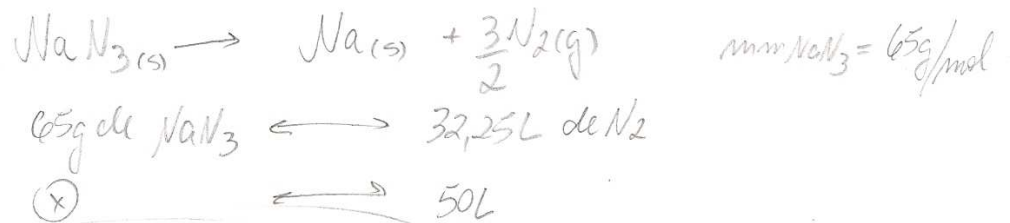 NaN₃(s) → Na(s) + 3/2 N₂(g) mmNaN₃ = 65g/mol
65g de NaN₃ ↔ 32,25L de N₂
x ↔ 50L